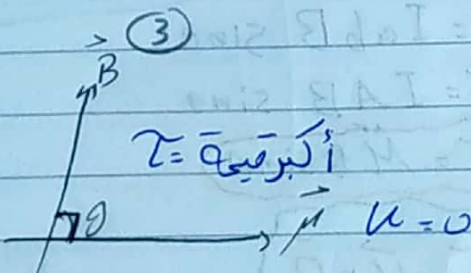 ③
B
τ = أكبر قيمة
θ
μ u = 0